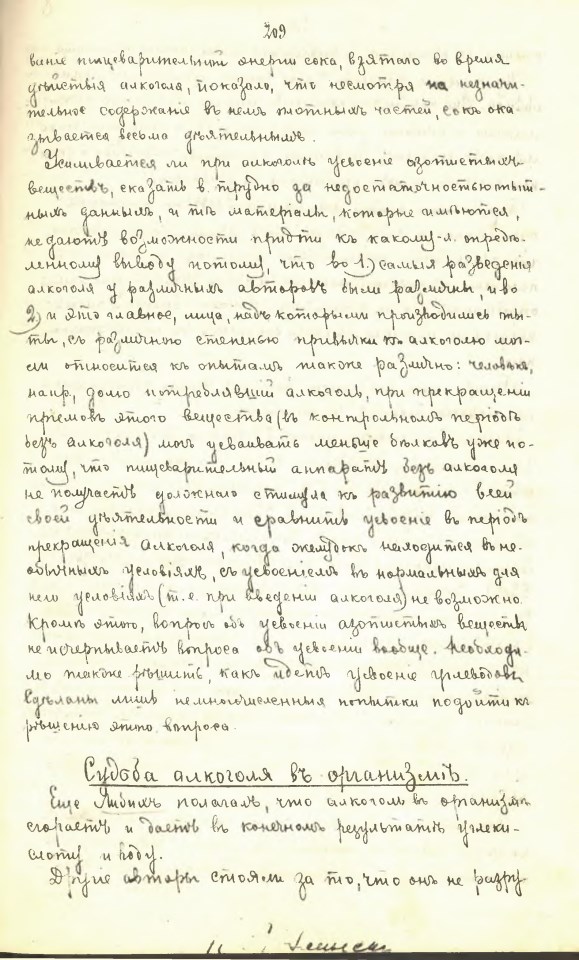 209
ваніе пищеварительной энергіи сока, взятаго во время
дѣйствія алкоголя, показало, что несмотря на незначи-
тельное содержаніе въ немъ плотныхъ частей, сокъ ока
зывается весьма дѣятельнымъ.
Усиливается ли при алкоголѣ усвоеніе азотистыхъ
веществъ, сказать в. трудно за недостаточностью опыт-
ныхъ данныхъ, и тѣ матеріалы, которые имѣются,
не даютъ возможности прійти къ какому-л. опредѣ-
ленному выводу потому, что во 1) самыя разведенія
алкоголя у различныхъ авторовъ были различны, и во
2) и это главное, лица, надъ которыми производились опы-
ты, съ различною степенью привычки къ алкоголю мог-
ли относиться къ опытамъ также различно: человѣкъ,
напр, долго потреблявшій алкоголь, при прекращеніи
пріемовъ этого вещества (въ контрольномъ періодѣ
безъ алкоголя) могъ усваивать меньше бѣлковъ уже по-
тому, что пищеварительный аппаратъ безъ алкоголя
не получаетъ должнаго стимула къ развитію всей
своей дѣятельности и сравнить усвоеніе въ періодъ
прекращенія алкоголя, когда желудокъ находится въ не-
обычныхъ условіяхъ, съ усвоеніемъ въ нормальныхъ для
него условіяхъ (т. е. при введеніи алкоголя) не возможно.
Кромѣ этого, вопросъ объ усвоеніи азотистыхъ веществъ
не исчерпываетъ вопроса объ усвоеніи вообще. Необходи-
мо также рѣшить, какъ идетъ усвоеніе углеводовъ.
Сдѣланы лишь немногочисленныя попытки подойти къ
рѣшенію этого вопроса.
Судьба алкоголя въ организмѣ.
Еще Либихъ полагалъ, что алкоголь въ организмѣ
сгораетъ и даетъ въ конечномъ результатѣ углеки-
слоту и воду.
Другіе авторы стояли за то, что онъ не разру